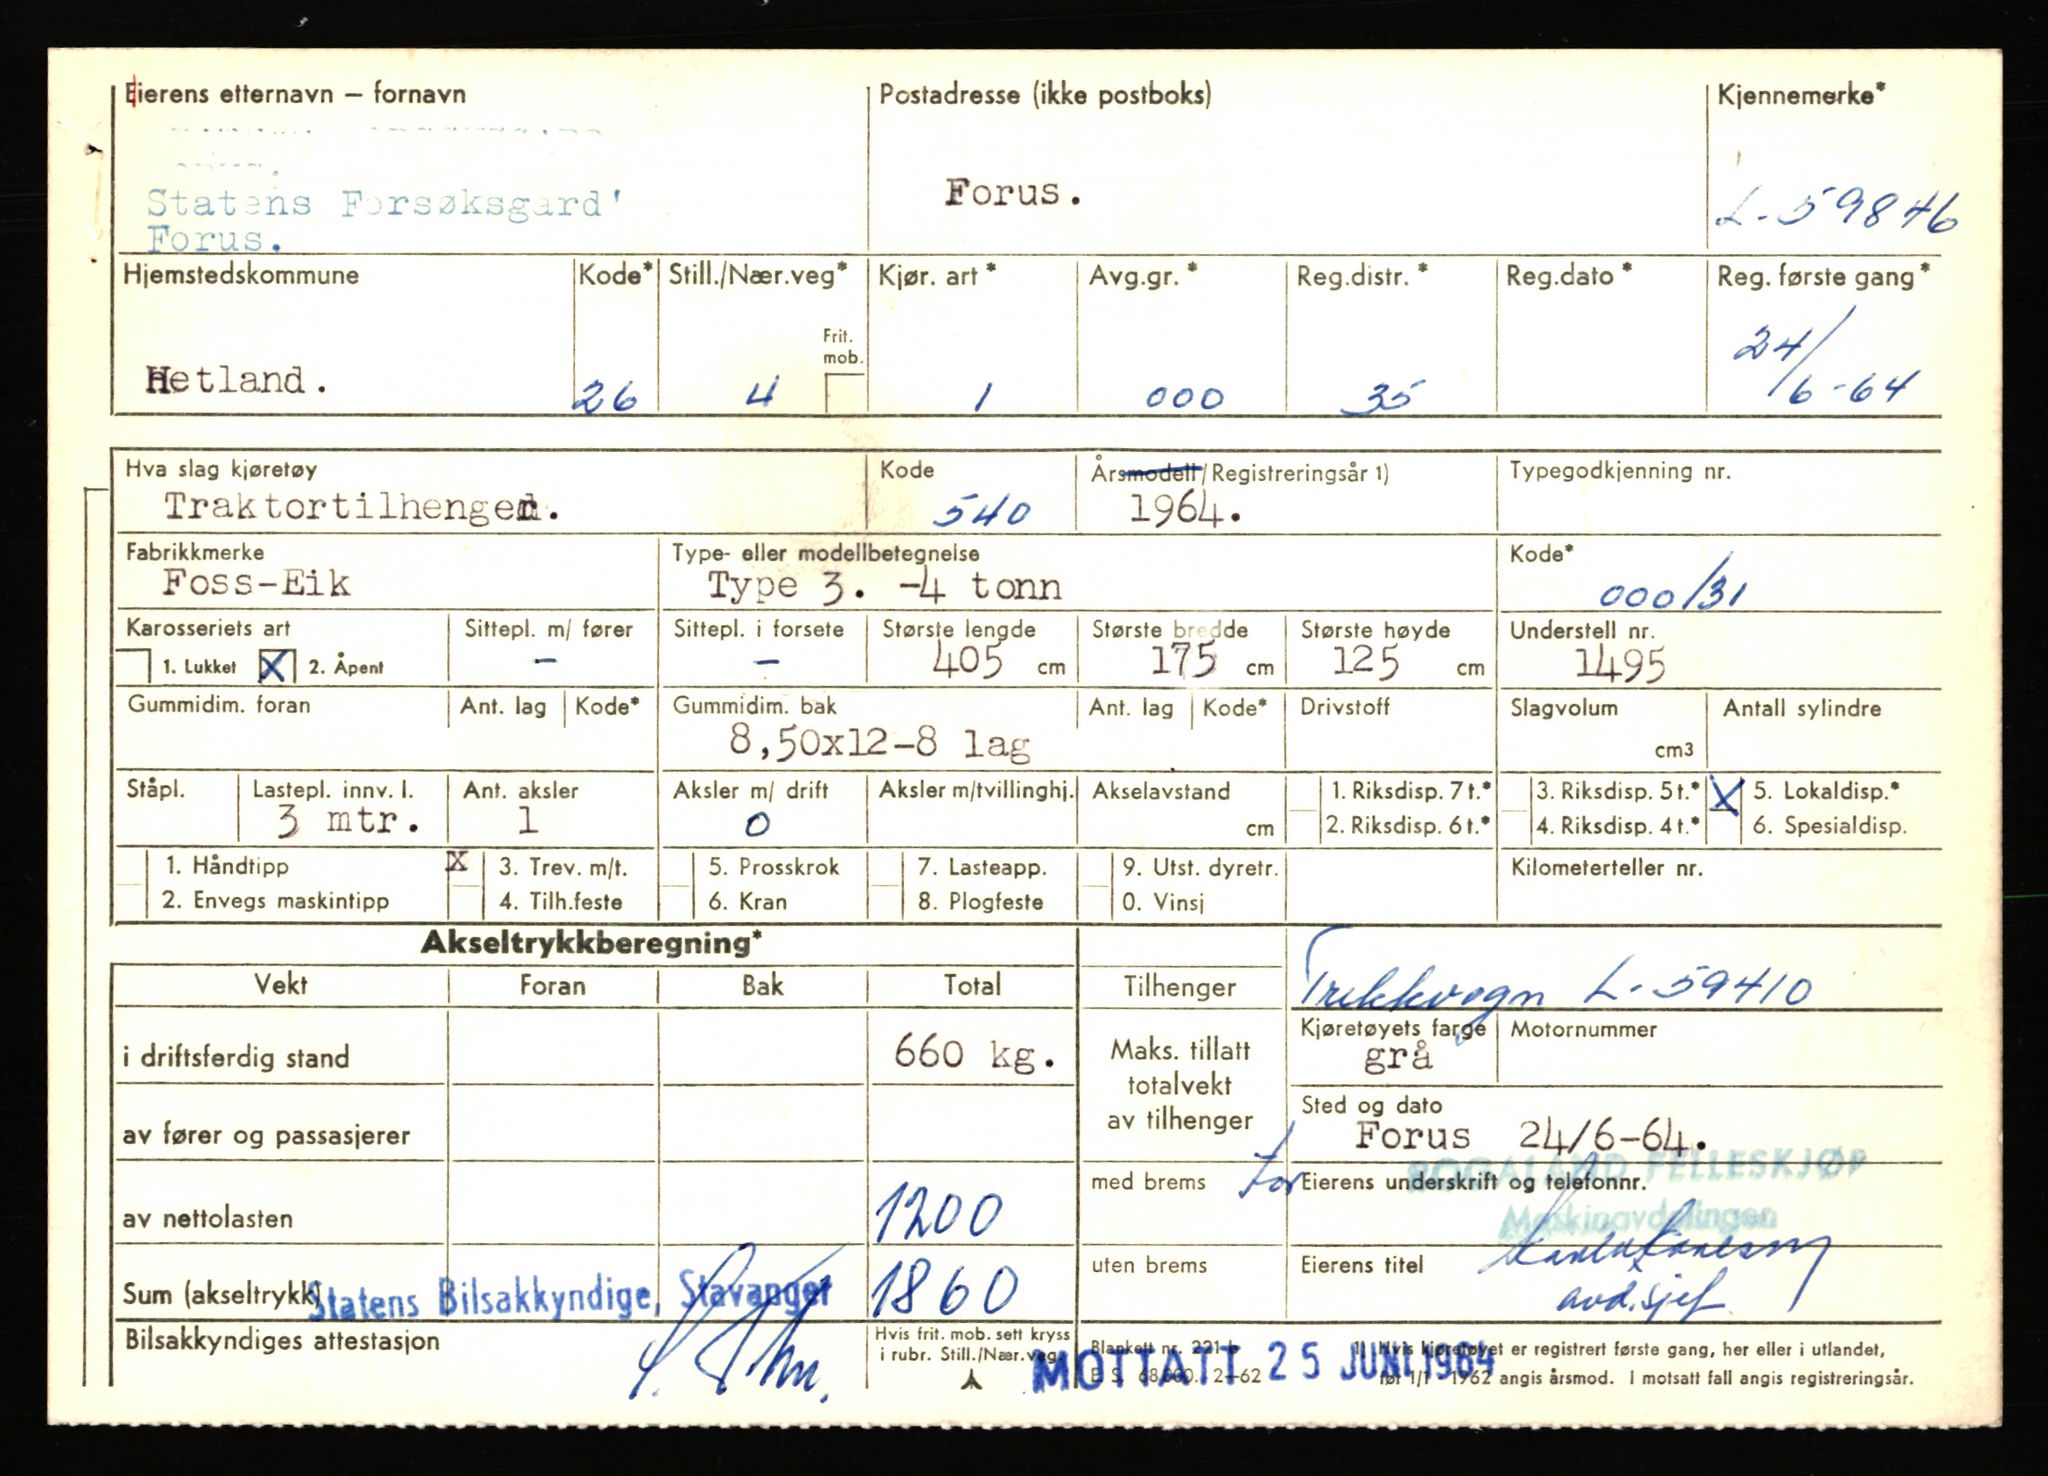 Eierens etternavn – fornavn
Postadresse (ikke postboks)
Kjennemerke*
Statens Forsøksgard'
Forus.
Forus.
L-59846
Hjemstedskommune Kode* Still./Nær.veg* Kjør. art* Avg.gr.* Reg.distr.* Reg.dato* Reg. første gang*
Frit. mob.
Hetland. 26 4 1 000 35 24/6-64
Hva slag kjøretøy Kode Årsmodell/Registreringsår 1) Typegodkjenning nr.
Traktortilhenger. 540 1964.
Fabrikkmerke Type- eller modellbetegnelse Kode*
Foss-Eik Type 3. -4 tonn 000/31
Karosseriets art Sittepl. m/ fører Sittepl. i forsete Største lengde Største bredde Største høyde Understell nr.
1. Lukket X 2. Åpent – – 405 cm 175 cm 125 cm 1495
Gummidim. foran Ant. lag Kode* Gummidim. bak Ant. lag Kode* Drivstoff Slagvolum Antall sylindre
8,50x12-8 lag cm3
Ståpl. Lastepl. innv. l. Ant. aksler Aksler m/ drift Aksler m/tvillinghj. Akselavstand 1. Riksdisp. 7 t.* 3. Riksdisp. 5 t.* X 5. Lokaldisp.*
3 mtr. 1 0 cm 2. Riksdisp. 6 t.* 4. Riksdisp. 4 t.* 6. Spesialdisp.
1. Håndtipp X 3. Trev. m/t. 5. Prosskrok 7. Lasteapp. 9. Utst. dyretr. Kilometerteller nr.
2. Envegs maskintipp 4. Tilh.feste 6. Kran 8. Plogfeste 0. Vinsj
Akseltrykkberegning*
Vekt Foran Bak Total Tilhenger Trekkvogn L-59410
Kjøretøyets farge Motornummer
i driftsferdig stand 660 kg. Maks. tillatt totalvekt av tilhenger grå
Sted og dato
av fører og passasjerer Forus 24/6-64.
ROGALAND FELLESKJØP
med brems for Eierens underskrift og telefonnr.
av nettolasten 1200 Maskinavdelingen
uten brems Eierens titel
Sum (akseltrykk) 1860 avd.sjef
Statens Bilsakkyndige, Stavanger
Bilsakkyndiges attestasjon
Hvis frit. mob. sett kryss
i rubr. Still./Nær.veg.
Blankett nr. 221 b 1) Hvis kjøretøyet er registrert første gang, her eller i utlandet,
E. S. 68.000. 2–62 før 1/1 1962 angis årsmod. I motsatt fall angis registreringsår.
MOTTATT 25 JUNI 1964